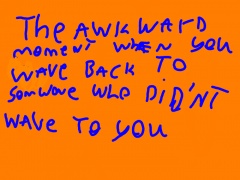 The AWKWARD
moment WHEN YOU
WAVE BACK TO
SomWONE WHO DiD'NT
WAVE TO YOU